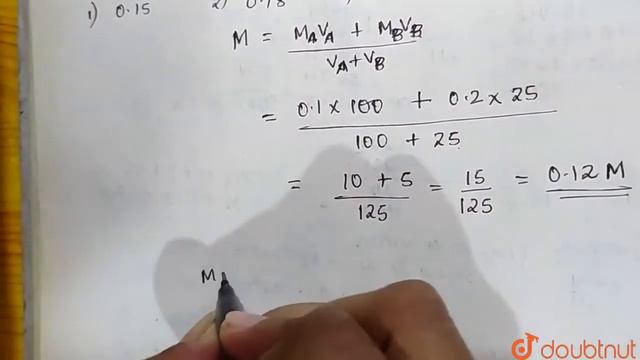 1) 0.15 2) 0.18
M = MAVA + MBVB
VA+VB
= 0.1 x 100 + 0.2 x 25
100 + 25
= 10 + 5 = 15 = 0.12 M
125 125
M
doubtnut